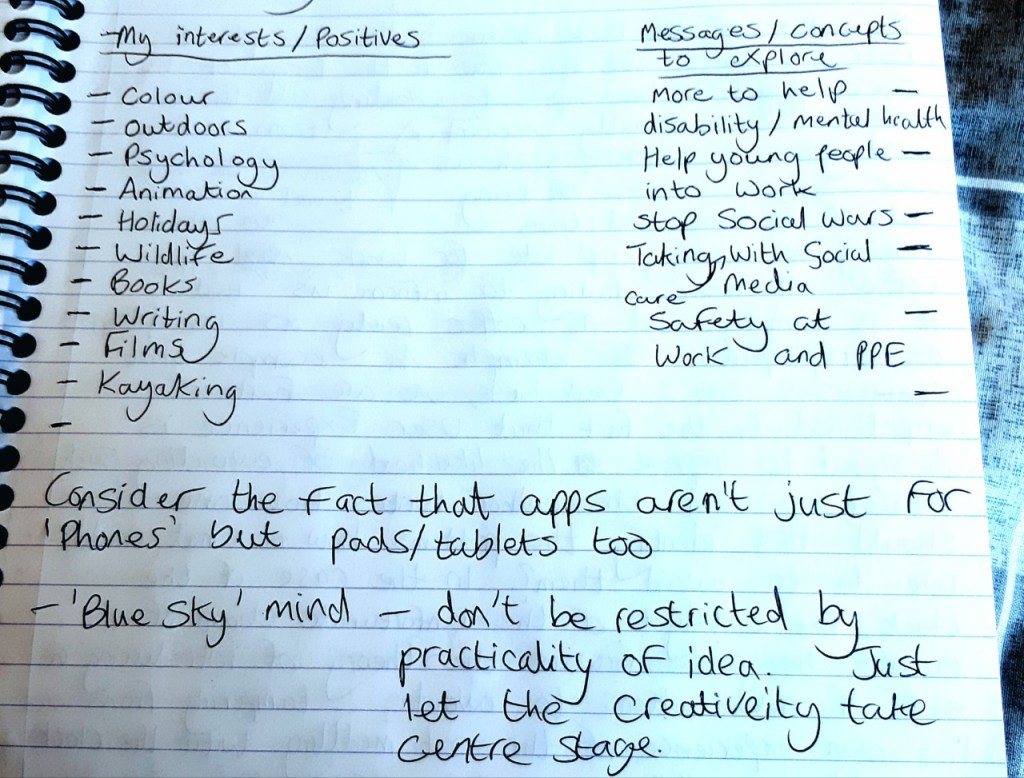 My interests/Positives
- Colour
- Outdoors
- Psychology
- Animation
- Holidays
- Wildlife
- Books
- Writing
- Films
- Kayaking
-
Messages/concepts
to explore
More to help -
disability/mental health
Help young people -
into work
Stop Social Wars -
Taking, With Social -
care Media
Safety at -
Work and PPE
-
Consider the fact that apps aren't just for
'Phones' but pads/tablets too
- 'Blue Sky' mind - don't be restricted by
practicality of idea. Just
let the Creativeity take
Centre stage.